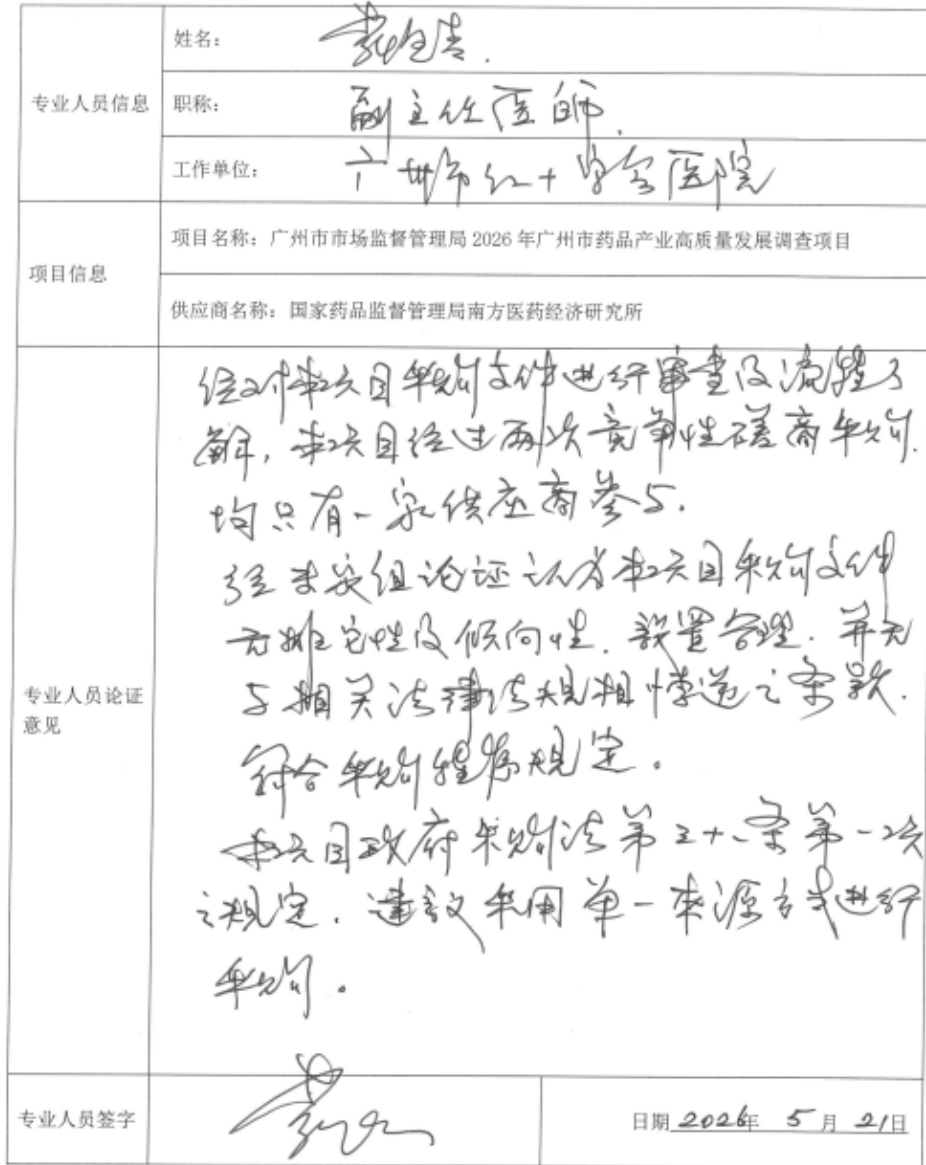 专业人员信息
姓名：
职称：副主任医师
工作单位：广州市红十字会医院
项目信息
项目名称：广州市市场监督管理局 2026 年广州市药品产业高质量发展调查项目
供应商名称：国家药品监督管理局南方医药经济研究所
专业人员论证
意见
经对本项目采购文件进行审查及流程了
解，本项目经过两次竞争性磋商采购．
均只有一家供应商参与．
经专家组论证认为本项目采购文件
无排它性及倾向性．设置合理．并无
与相关法律法规相悖逆之条款．
符合采购程序规定。
本项目政府采购法第三十一条第一项
之规定．建议采用单一来源方式进行
采购。
专业人员签字
日期 2026年 5 月 21日